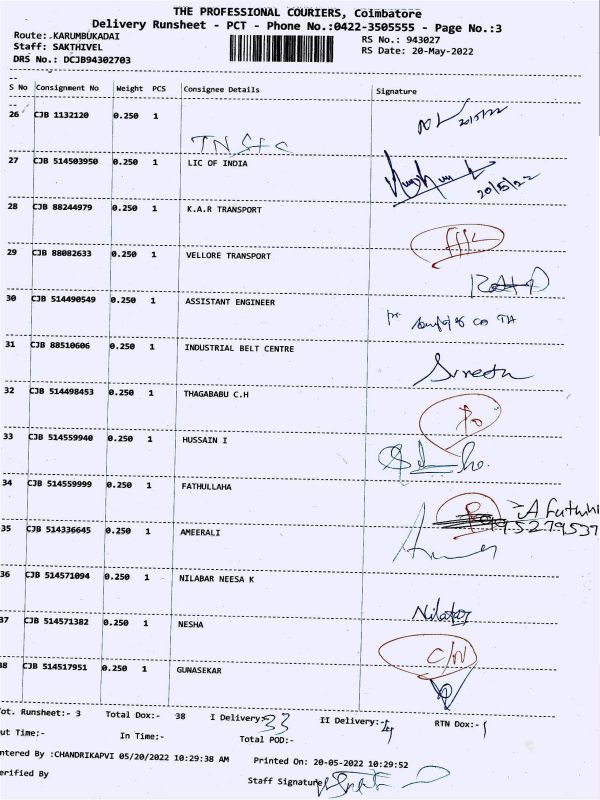 THE PROFESSIONAL COURIERS, Coimbatore
Delivery Runsheet - PCT - Phone No.:0422-3505555 - Page No.:3
Route: KARUMBUKADAI RS No.: 943027
Staff: SAKTHIVEL RS Date: 20-May-2022
DRS No.: DCJB94302703
S No Consignment No Weight PCS Consignee Details Signature
26 CJB 1132120 0.250 1 20/5/22
27 CJB 514503950 0.250 1 LIC OF INDIA 20/5/22
28 CJB 88244979 0.250 1 K.A.R TRANSPORT
29 CJB 88082633 0.250 1 VELLORE TRANSPORT
30 CJB 514490549 0.250 1 ASSISTANT ENGINEER
31 CJB 88510606 0.250 1 INDUSTRIAL BELT CENTRE
32 CJB 514498453 0.250 1 THAGABABU C.H
33 CJB 514559940 0.250 1 HUSSAIN I
34 CJB 514559999 0.250 1 FATHULLAHA
35 CJB 514336645 0.250 1 AMEERALI
36 CJB 514571094 0.250 1 NILABAR NEESA K
37 CJB 514571382 0.250 1 NESHA
38 CJB 514517951 0.250 1 GUNASEKAR
Tot. Runsheet:- 3 Total Dox:- 38 I Delivery:- 33 II Delivery:- RTN Dox:-
Out Time:- In Time:- Total POD:-
Entered By :CHANDRIKAPVI 05/20/2022 10:29:38 AM Printed On: 20-05-2022 10:29:52
Verified By Staff Signature